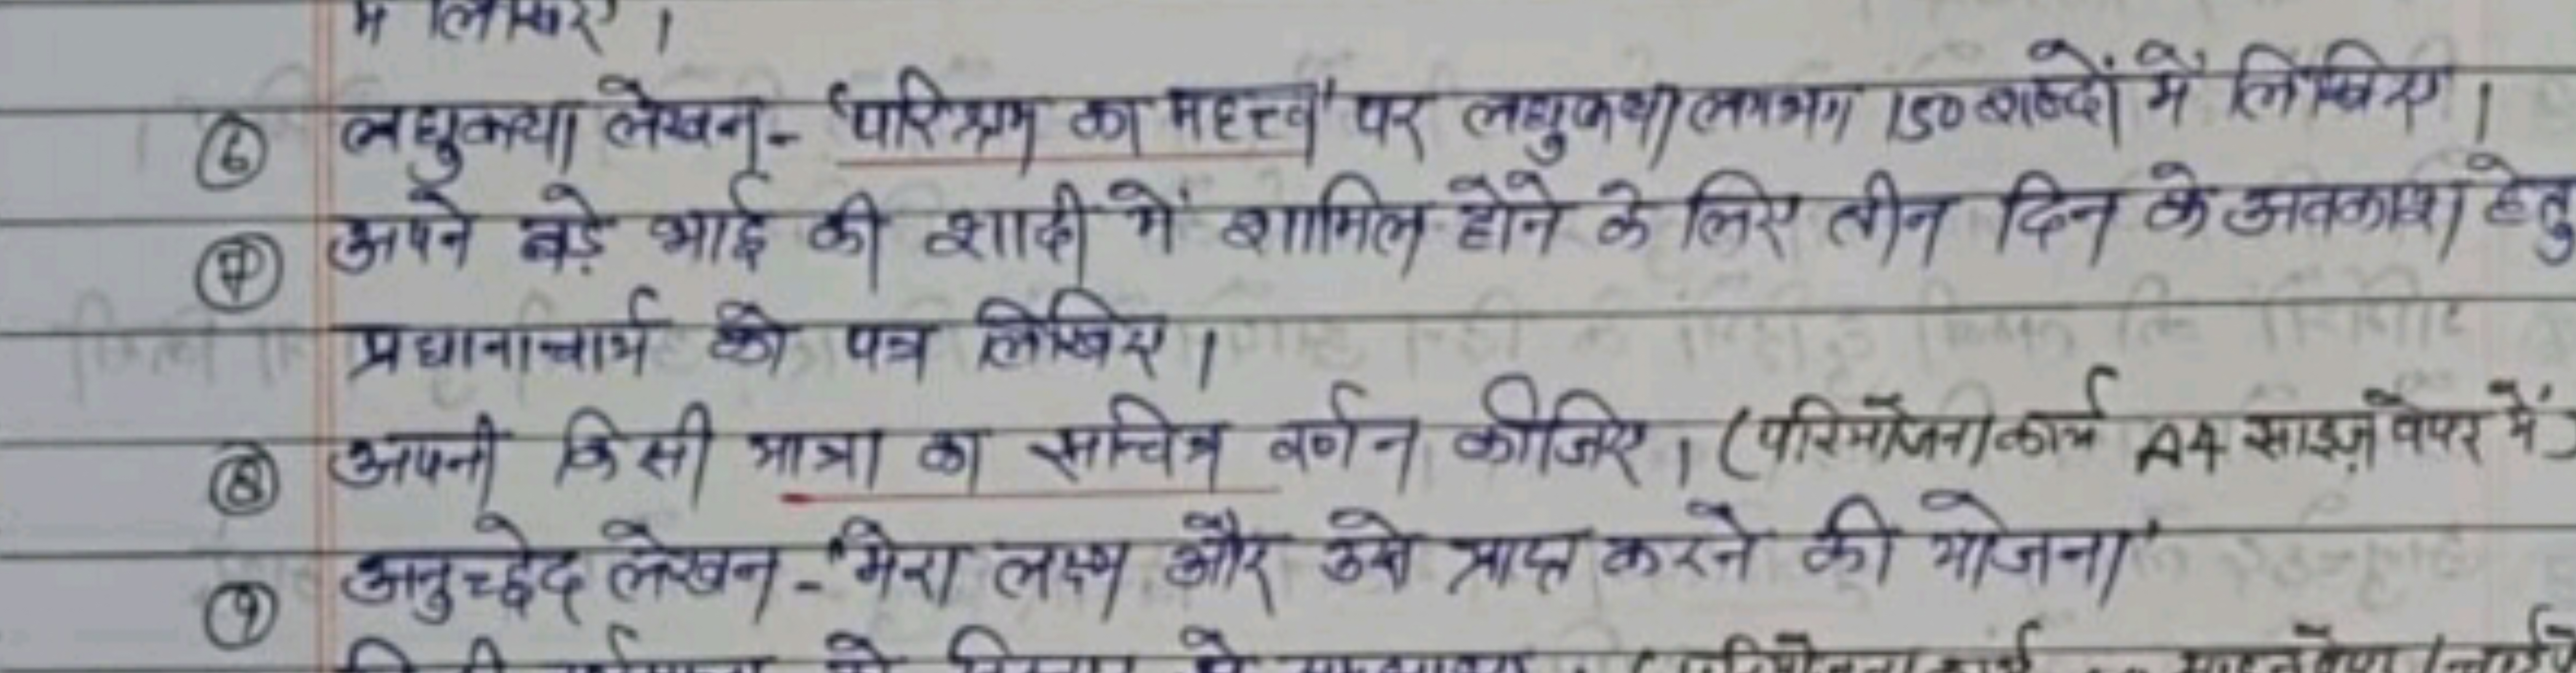 में लिखिए।
⑥ लघुकथा लेखन - 'परिश्रम का महत्त्व' पर लघुकथा लगभग 150 शब्दों में लिखिए।
⑦ अपने बड़े भाई की शादी में शामिल होने के लिए तीन दिन के अवकाश हेतु
प्रधानाचार्य को पत्र लिखिए।
⑧ अपनी किसी यात्रा का सचित्र वर्णन कीजिए। (परियोजना कार्य A4 साइज़ पेपर में)
⑨ अनुच्छेद लेखन - 'मेरा लक्ष्य और उसे प्राप्त करने की योजना'